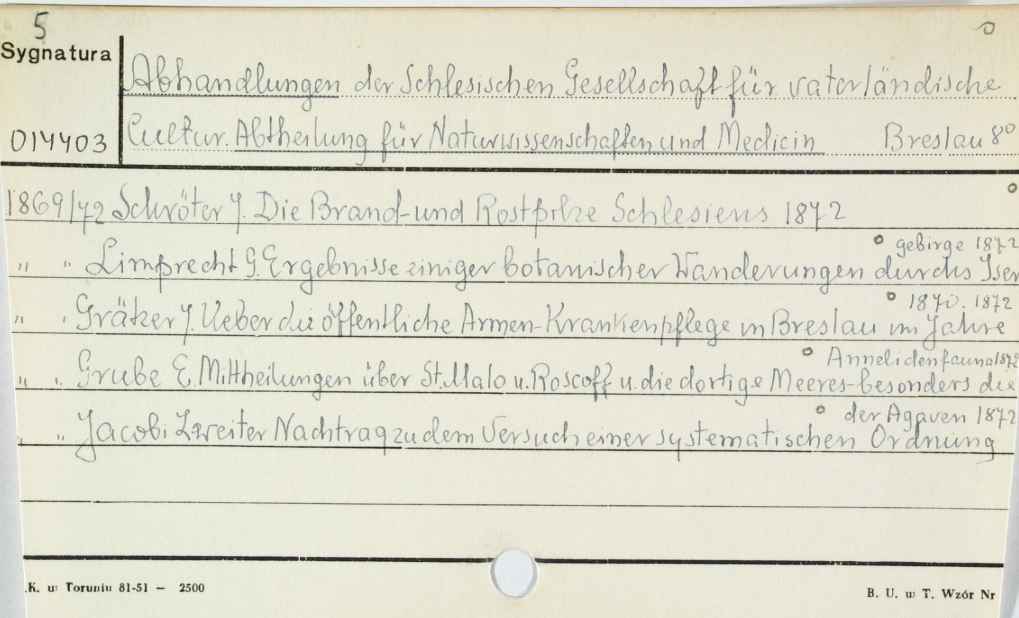 5
Sygnatura
014403
Abhandlungen der Schlesischen Gesellschaft für vaterländische
Cultur. Abtheilung für Naturwissenschaften und Medicin Breslau 8°
1869/72 Schröter J. Die Brand- und Rostpilze Schlesiens 1872
gebirge 1872
" " Limprecht G. Ergebnisse einiger botanischer Wanderungen durchs Iser
1870. 1872
" " Grätzer J. Ueber die öffentliche Armen-Krankenpflege in Breslau im Jahre
Annelidenfauna 1872
" " Grube E. Mittheilungen über St. Malo u. Roscoff u. die dortige Meeres- besonders die
der Agaven 1872
" " Jacobi Zweiter Nachtrag zu dem Versuch einer systematischen Ordnung
.K. w Toruniu 81-51 — 2500
B. U. w T. Wzór Nr